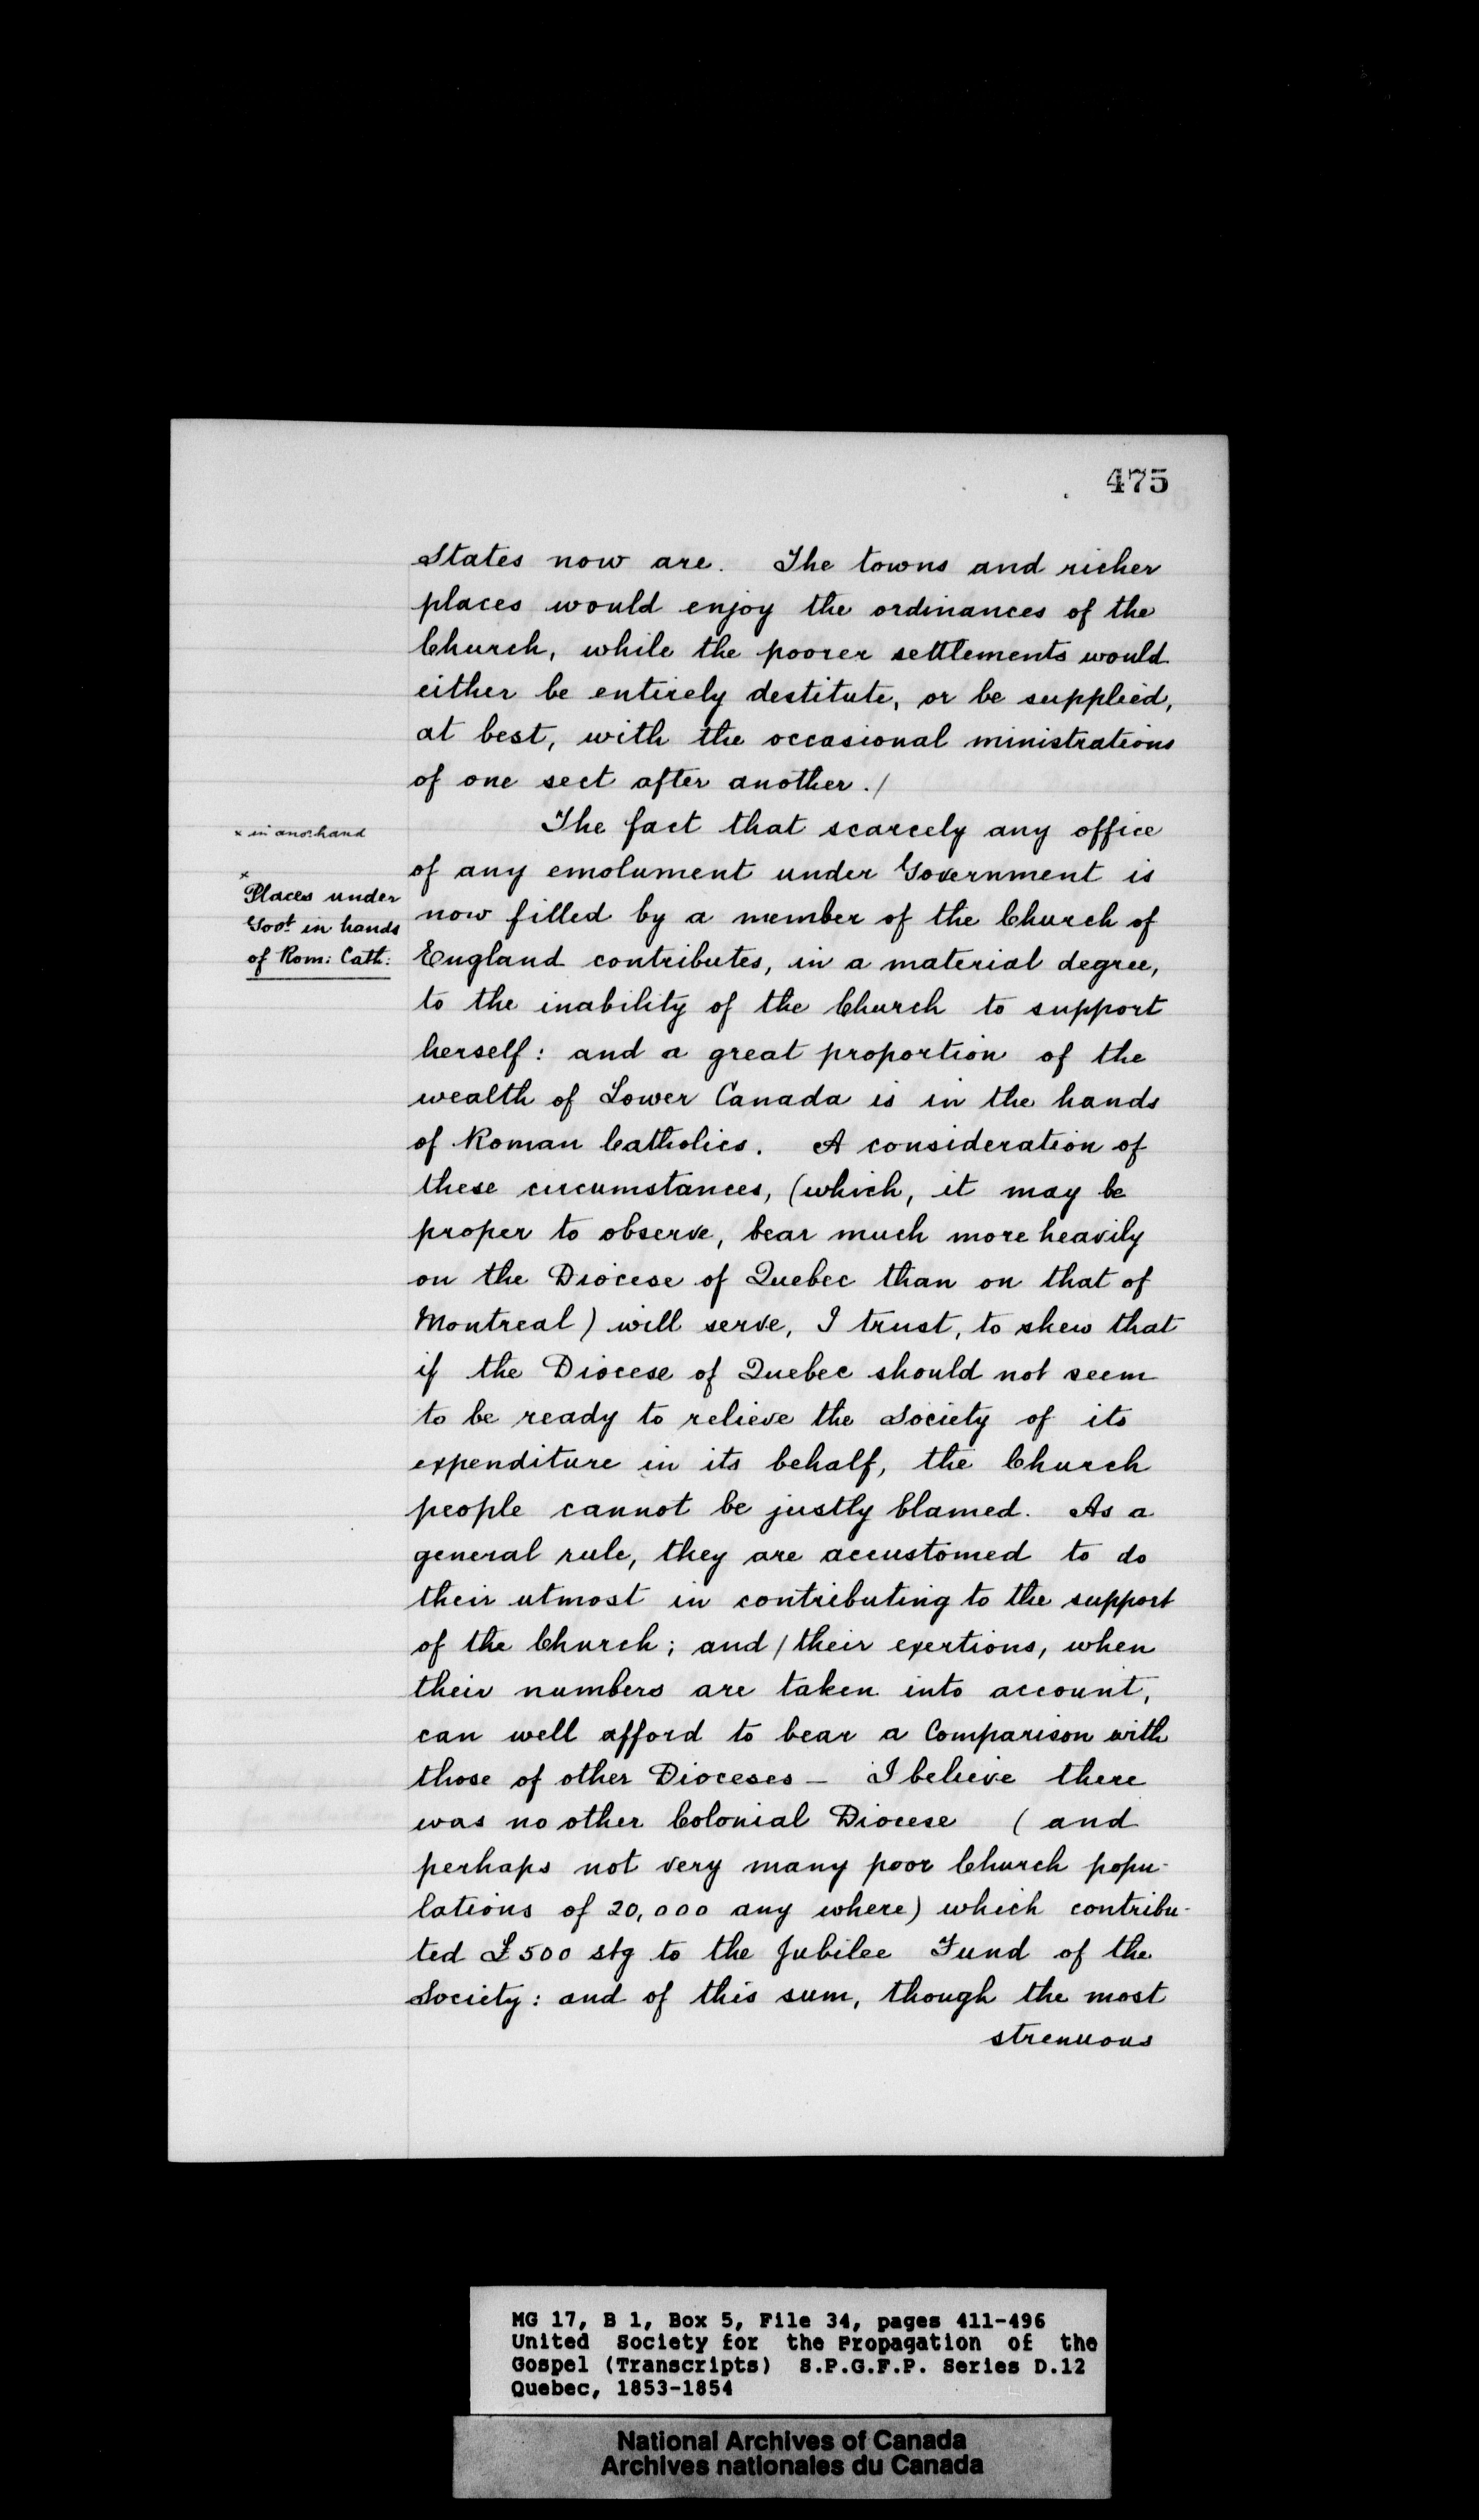 475
States now are. The towns and richer
places would enjoy the ordinances of the
Church, while the poorer settlements would
either be entirely destitute, or be supplied,
at best, with the occasional ministrations
of one sect after another./
x in ano: hand
The fact that scarcely any office
of any emolument under Government is
x
Places under
Govt. in hands
of Rom: Cath:
now filled by a member of the Church of
England contributes, in a material degree,
to the inability of the Church to support
herself: and a great proportion of the
wealth of Lower Canada is in the hands
of Roman Catholics. A consideration of
these circumstances, (which, it may be
proper to observe, bear much more heavily
on the Diocese of Quebec than on that of
Montreal) will serve, I trust, to shew that
if the Diocese of Quebec should not seem
to be ready to relieve the Society of its
expenditure in its behalf, the Church
people cannot be justly blamed. As a
general rule, they are accustomed to do
their utmost in contributing to the support
of the Church; and / their exertions, when
their numbers are taken into account,
can well afford to bear a Comparison with
those of other Dioceses – I believe there
was no other Colonial Diocese ( and
perhaps not very many poor Church popu-
lations of 20,000 any where) which contribu-
ted £500 stg to the Jubilee Fund of the
Society: and of this sum, though the most
strenuous
MG 17, B 1, Box 5, File 34, pages 411-496
United Society for the Propagation of the
Gospel (Transcripts) S.P.G.F.P. Series D.12
Quebec, 1853-1854
National Archives of Canada
Archives nationales du Canada